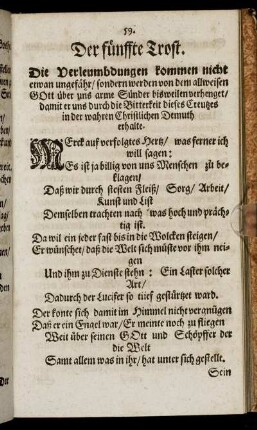 59.
Der fünffte Trost.
Die Verleumbdungen kommen nicht
etwan ungefähr / sondern werden von dem allweisen
GOtt über uns arme Sünder bisweilen verhenget /
damit er uns durch die Bitterkeit dieses Creutzes
in der wahren Christlichen Demuth
erhalte.
MErck auf verfolgtes Hertz / was ferner ich
will sagen:
Es ist ja billig von uns Menschen zu be-
klagen /
Daß wir durch steten Fleiß / Sorg / Arbeit /
Kunst und List
Demselben trachten nach was hoch und präch-
tig ist.
Da wil ein jeder fast bis in die Wolcken steigen /
Er wünschet / daß die Welt sich müste vor ihm nei-
gen
Und ihm zu Dienste stehn: Ein Laster solcher
Art /
Dadurch der Lucifer so tieff gestürtzet ward.
Der konte sich damit im Himmel nicht vergnügen
Daß er ein Engel war / Er meinte noch zu fliegen
Weit über seinen GOtt und Schöpffer der
die Welt
Samt allem was in ihr / hat unter sich gestelle.
Sein